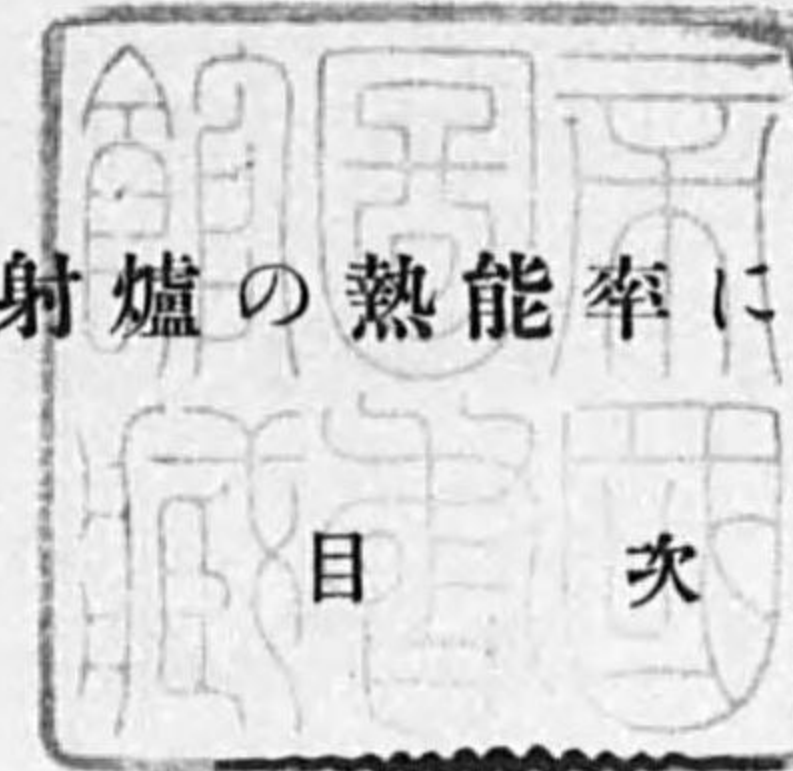 射爐の熱能率に
目次
帝國
圖書
館藏